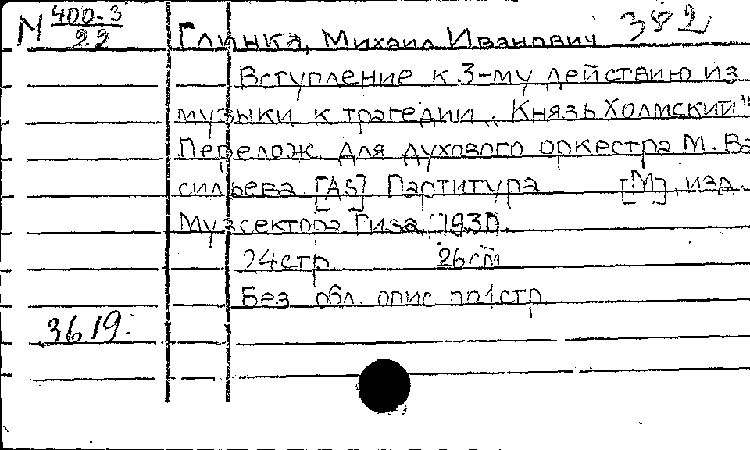 М 400-3/22 Глинка, Михаил Иванович 382
Вступление к 3-му действию из
музыки к трагедии „Князь Холмский"
Перелож. для духового оркестра М. Ва
сильева. [As] Партитура [М], изд.
Музсектора Гиза, 1930.
24 стр. 26 см
Без обл. опис. по 1 стр.
3619.